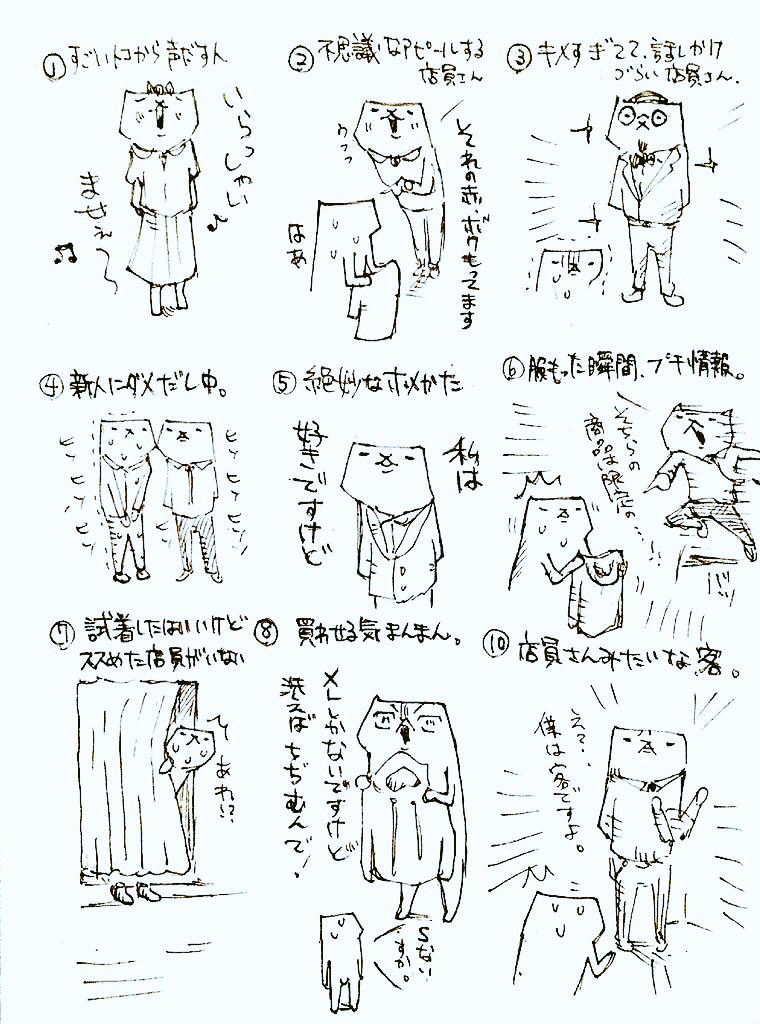 ①すごいトコから声だすん
いらっしゃい
ませぇ〜
②不思議なアピールする
店員さん
それの赤ボクもってます
ウフフ
はあ
③キメすぎてて、話しかけ
づらい店員さん.
④新人にダメだし中。
ヒソ
ヒソ
ヒソ
ヒソ
ヒソ
ヒソ
⑤絶妙なホメかた
私は
好きですけど
⑥服もった瞬間、プチ情報。
そちらの
商品は限定の…
バッ
⑦試着したはいいけど
ススめた店員がいない
あれ??
⑧買わせる気まんまん。
Mしかないですけど
洗えばちぢむんで!
Sない
ですか。
⑩店員さんみたいな客。
え??
僕は客ですよ。